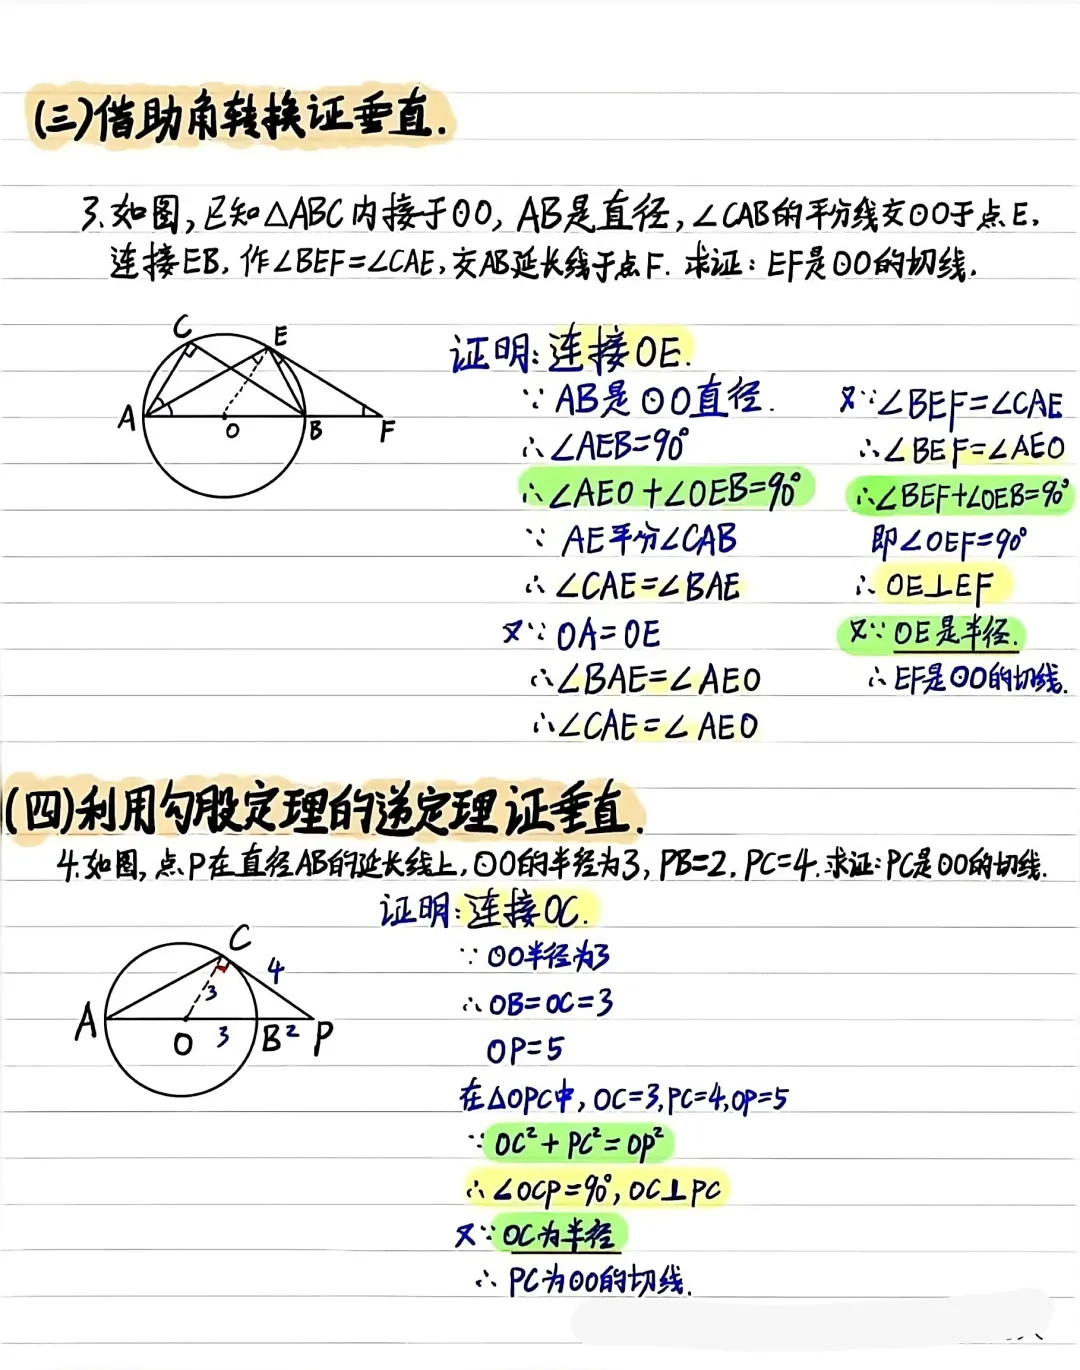 (三)借助角转换证垂直.
3.如图,已知△ABC内接于⊙O, AB是直径,∠CAB的平分线交⊙O于点E,
连接EB, 作∠BEF=∠CAE,交AB延长线于点F. 求证: EF是⊙O的切线.
C
E
A
O
B
F
证明:连接OE.
∵ AB是⊙O直径.
∴∠AEB=90°
∴∠AEO+∠OEB=90°
∵ AE平分∠CAB
∴∠CAE=∠BAE
又∵OA=OE
∴∠BAE=∠AEO
∴∠CAE=∠AEO
又∵∠BEF=∠CAE
∴∠BEF=∠AEO
∴∠BEF+∠OEB=90°
即∠OEF=90°
∴OE⊥EF
又∵OE是半径.
∴EF是⊙O的切线.
(四)利用勾股定理的逆定理证垂直.
4.如图,点P在直径AB的延长线上,⊙O的半径为3, PB=2, PC=4.求证:PC是⊙O的切线.
C
4
3
A
O
3
B
2
P
证明:连接OC.
∵⊙O半径为3
∴OB=OC=3
OP=5
在△OPC中, OC=3,PC=4,OP=5
∵OC²+PC²=OP²
∴∠OCP=90°, OC⊥PC
又∵OC为半径
∴ PC为⊙O的切线.